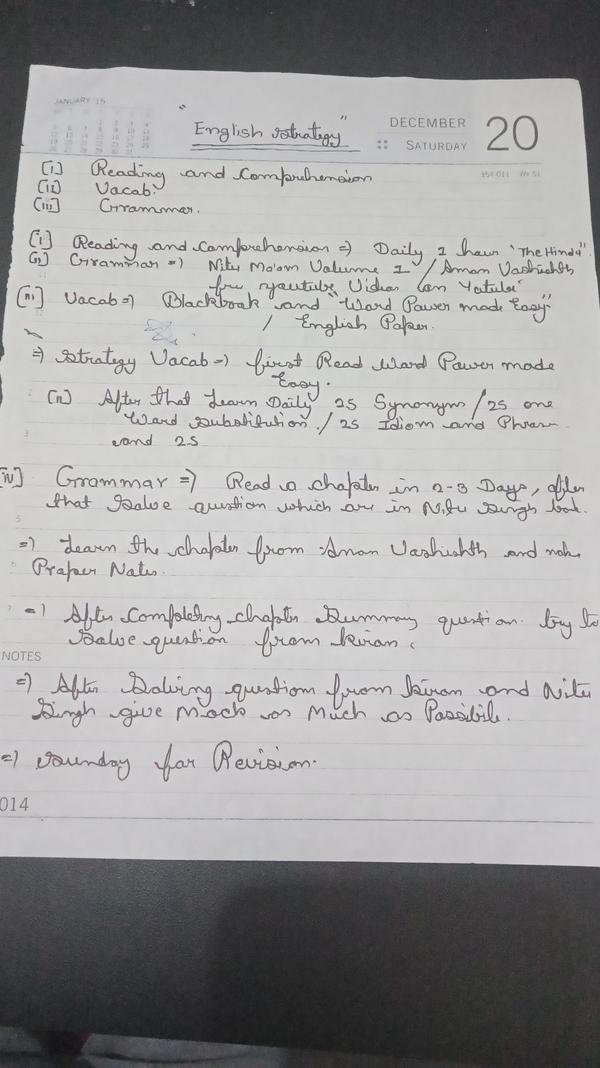 JANUARY 15
DECEMBER 20
SATURDAY
"English strategy"
[i] Reading and Comprehension
[ii] Vacab.
[iii] Grammar.
[i] Reading and Comprehension => Daily 1 hour "The Hindu"
[ii] Grammar => Nitu Ma'am Volume 1 / Aman Vashishth
free youtube Vidios (on Yotube"
[iii] Vocab => Blackbook and "Word Power made Easy"
/ English Paper.
=> Strategy Vocab => first Read Word Power made
Easy.
[ii] After that Learn Daily 25 Synonym / 25 one
Word Substitution / 25 Idiom and Phrase
and 25
[iv] Grammar => Read a chapter in 2-3 Days, after
that Solve question which are in Nitu Singh book.
=> Learn the chapter from Aman Vashishth and make
Praper Notes.
=> After Completing chapter Summary question try to
Solve question from kiran.
NOTES
=> After Solving question from kiran and Nitu
Singh give Mock as Much as Possible.
=> Sunday for Revision.
014